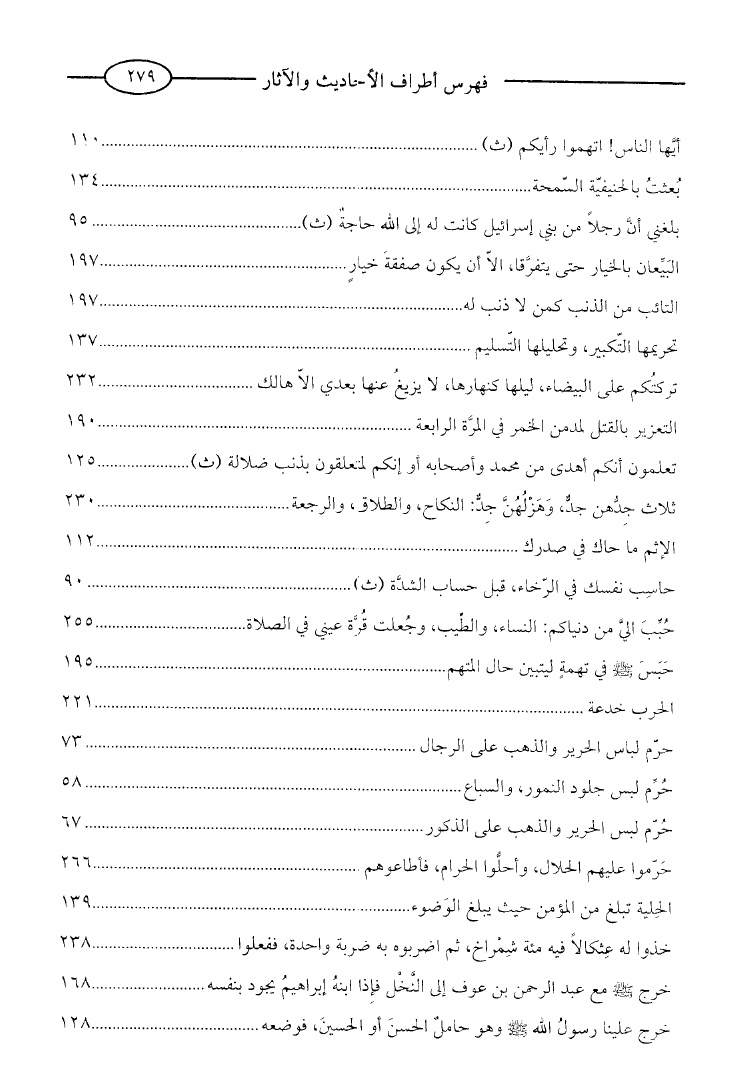 فهرس أطراف الأحاديث والآثار ٢٧٩
أيَّها الناس! اتهموا رأيكم (ث) ١١٠
بُعثتُ بالحنيفيّة السّمحة ١٣٤
بلغني أنَّ رجلاً من بني إسرائيل كانت له إلى الله حاجةٌ (ث) ٩٥
البَيِّعان بالخيار حتى يتفرَّقا، الاّ أن يكون صفقةَ خيارٍ ١٩٧
التائب من الذنب كمن لا ذنب له ١٩٧
تحريمها التّكبير، وتحليلها التّسليم ١٣٧
تركتُكم على البيضاء، ليلها كنهارها، لا يزيغُ عنها بعدي الاّ هالك ٢٣٢
التعزير بالقتل لمدمن الخمر في المرَّة الرابعة ١٩٠
تعلمون أنكم أهدى من محمد وأصحابه أو إنكم لمتعلقون بذنب ضلالة (ث) ١٢٥
ثلاث جِدُّهن جدٌّ، وَهَزْلُهُنَّ جِدٌّ: النكاح، والطلاق، والرجعة ٢٣٠
الإثم ما حاك في صدرك ١١٢
حاسِب نفسك في الرّخاء، قبل حساب الشدَّة (ث) ٩٠
حُبِّبَ اليَّ من دنياكم: النساء، والطّيب، وجُعلت قُرَّة عيني في الصلاة ٢٥٥
حَبَسَ ﷺ في تهمةٍ ليتبين حال المتهم ١٩٥
الحرب خدعة ٢٢١
حرّم لباس الحرير والذهب على الرجال ٧٣
حُرِّم لبس جلود النمور، والسباع ٥٨
حُرّم لبس الحرير والذهب على الذكور ٦٧
حَرّموا عليهم الحلال، وأحلُّوا الحرام، فأطاعوهم ٢٦٦
الحِلية تبلغ من المؤمن حيث يبلغ الوَضوء ١٣٩
خذوا له عِثكالاً فيه مئة شِمْراخ، ثم اضربوه به ضربة واحدة، ففعلوا ٢٣٨
خرج ﷺ مع عبد الرحمن بن عوف إلى النَّخْل فإذا ابنهُ إبراهيمُ يجود بنفسه ١٦٨
خرج علينا رسولُ الله ﷺ وهو حاملٌ الحسنَ أو الحسينَ، فوضعه ١٢٨